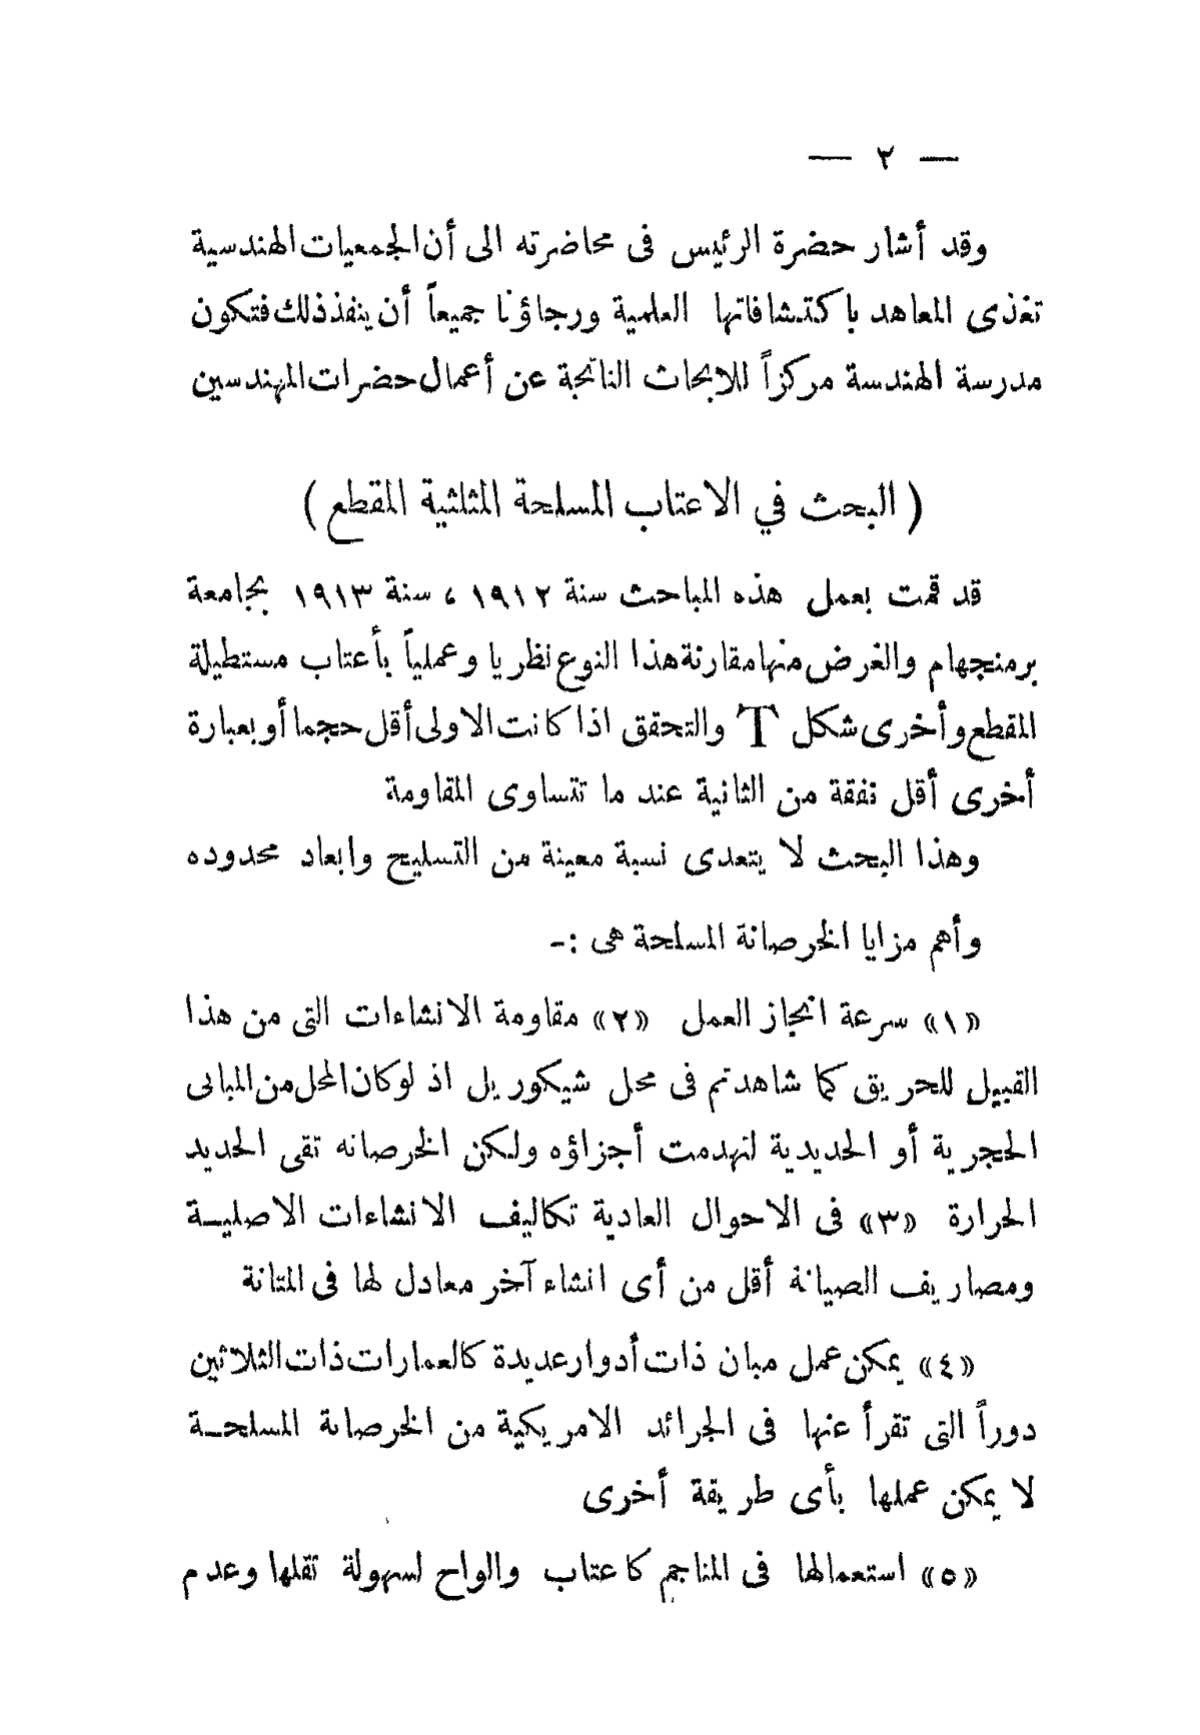 — ٢ —
وقد أشار حضرة الرئيس فى محاضرته الى أن الجمعيات الهندسية
تغذى المعاهد باكتشافاتها العلمية ورجاؤنا جميعاً أن ينفذ ذلك فتكون
مدرسة الهندسة مركزاً للابحاث الناتجة عن أعمال حضرات المهندسين
( البحث في الاعتاب المسلحة المثلثية المقطع )
قد قمت بعمل هذه المباحث سنة ١٩١٢ ، سنة ١٩١٣ بجامعة
برمنجهام والغرض منها مقارنة هذا النوع نظريا وعملياً بأعتاب مستطيلة
المقطع وأخرى شكل T والتحقق اذا كانت الاولى أقل حجما أو بعبارة
أخرى أقل نفقة من الثانية عند ما تتساوى المقاومة
وهذا البحث لا يتعدى نسبة معينة من التسليح وابعاد محدوده
وأهم مزايا الخرصانة المسلحة هى :-
«١» سرعة انجاز العمل «٢» مقاومة الانشاءات التى من هذا
القبيل للحريق كما شاهدتم فى محل شيكوريل اذ لوكان المحل من المبانى
الحجرية أو الحديدية لتهدمت أجزاؤه ولكن الخرصانه تقى الحديد
الحرارة «٣» فى الاحوال العادية تكاليف الانشاءات الاصليــة
ومصاريف الصيانة أقل من أى انشاء آخر معادل لها فى المتانة
«٤» يمكن عمل مبان ذات أدوار عديدة كالعمارات ذات الثلاثين
دوراً التى تقرأ عنها فى الجرائد الامريكية من الخرصانة المسلحــة
لا يمكن عملها بأى طريقة أخرى
«٥» استعمالها فى المناجم كاعتاب والواح لسهولة تقلها وعدم